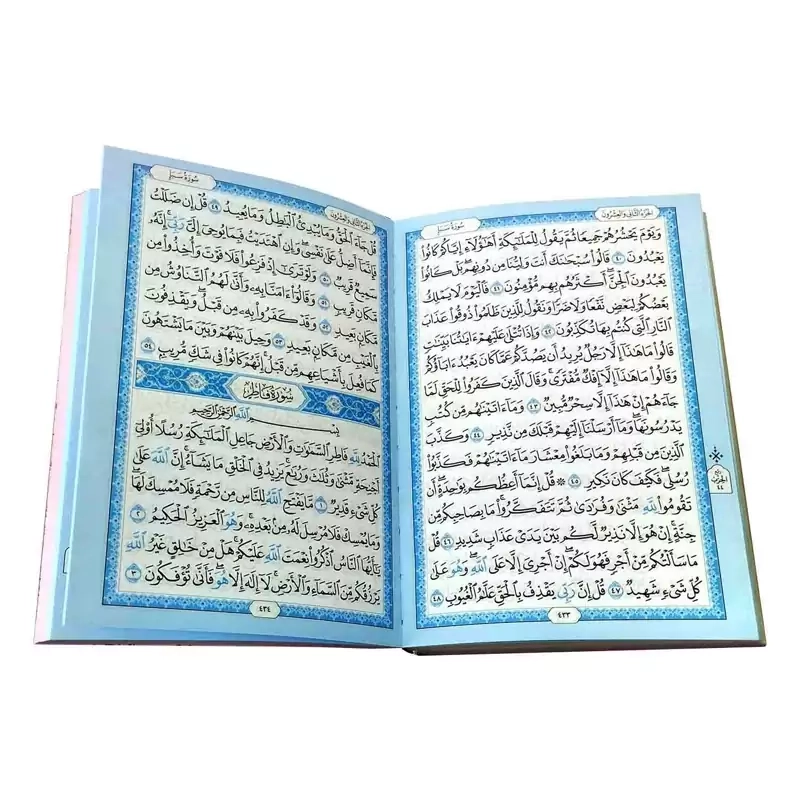 الجزء الثاني والعشرون سورة سبإ
وَيَوْمَ يَحْشُرُهُمْ جَمِيعًا ثُمَّ يَقُولُ لِلْمَلَٰٓئِكَةِ أَهَٰٓؤُلَآءِ إِيَّاكُمْ كَانُوا۟
يَعْبُدُونَ ٤٠ قَالُوا۟ سُبْحَٰنَكَ أَنتَ وَلِيُّنَا مِن دُونِهِم بَلْ كَانُوا۟
يَعْبُدُونَ ٱلْجِنَّ أَكْثَرُهُم بِهِم مُّؤْمِنُونَ ٤١ فَٱلْيَوْمَ لَا يَمْلِكُ
بَعْضُكُمْ لِبَعْضٍ نَّفْعًا وَلَا ضَرًّا وَنَقُولُ لِلَّذِينَ ظَلَمُوا۟ ذُوقُوا۟ عَذَابَ
ٱلنَّارِ ٱلَّتِى كُنتُم بِهَا تُكَذِّبُونَ ٤٢ وَإِذَا تُتْلَىٰ عَلَيْهِمْ ءَايَٰتُنَا بَيِّنَٰتٍ
قَالُوا۟ مَا هَٰذَآ إِلَّا رَجُلٌ يُرِيدُ أَن يَصُدَّكُمْ عَمَّا كَانَ يَعْبُدُ ءَابَآؤُكُمْ
وَقَالُوا۟ مَا هَٰذَآ إِلَّآ إِفْكٌ مُّفْتَرًى وَقَالَ ٱلَّذِينَ كَفَرُوا۟ لِلْحَقِّ لَمَّا
جَآءَهُمْ إِنْ هَٰذَآ إِلَّا سِحْرٌ مُّبِينٌ ٤٣ وَمَآ ءَاتَيْنَٰهُم مِّن كُتُبٍ
يَدْرُسُونَهَا وَمَآ أَرْسَلْنَآ إِلَيْهِمْ قَبْلَكَ مِن نَّذِيرٍ ٤٤ وَكَذَّبَ
ٱلَّذِينَ مِن قَبْلِهِمْ وَمَا بَلَغُوا۟ مِعْشَارَ مَآ ءَاتَيْنَٰهُمْ فَكَذَّبُوا۟
رُسُلِى فَكَيْفَ كَانَ نَكِيرِ ٤٥ ۞ قُلْ إِنَّمَآ أَعِظُكُم بِوَٰحِدَةٍ أَن
تَقُومُوا۟ لِلَّهِ مَثْنَىٰ وَفُرَٰدَىٰ ثُمَّ تَتَفَكَّرُوا۟ مَا بِصَاحِبِكُم مِّن
جِنَّةٍ إِنْ هُوَ إِلَّا نَذِيرٌ لَّكُم بَيْنَ يَدَىْ عَذَابٍ شَدِيدٍ ٤٦ قُلْ
مَا سَأَلْتُكُم مِّنْ أَجْرٍ فَهُوَ لَكُمْ إِنْ أَجْرِىَ إِلَّا عَلَى ٱللَّهِ وَهُوَ عَلَىٰ
كُلِّ شَىْءٍ شَهِيدٌ ٤٧ قُلْ إِنَّ رَبِّى يَقْذِفُ بِٱلْحَقِّ عَلَّٰمُ ٱلْغُيُوبِ ٤٨
٤٣٣
سورة سبإ
قُلْ جَآءَ ٱلْحَقُّ وَمَا يُبْدِئُ ٱلْبَٰطِلُ وَمَا يُعِيدُ ٤٩ قُلْ إِن ضَلَلْتُ
فَإِنَّمَآ أَضِلُّ عَلَىٰ نَفْسِى وَإِنِ ٱهْتَدَيْتُ فَبِمَا يُوحِىٓ إِلَىَّ رَبِّىٓ إِنَّهُۥ
سَمِيعٌ قَرِيبٌ ٥٠ وَلَوْ تَرَىٰٓ إِذْ فَزِعُوا۟ فَلَا فَوْتَ وَأُخِذُوا۟ مِن
مَّكَانٍ قَرِيبٍ ٥١ وَقَالُوٓا۟ ءَامَنَّا بِهِۦ وَأَنَّىٰ لَهُمُ ٱلتَّنَاوُشُ مِن
مَّكَانٍۭ بَعِيدٍ ٥٢ وَقَدْ كَفَرُوا۟ بِهِۦ مِن قَبْلُ وَيَقْذِفُونَ
بِٱلْغَيْبِ مِن مَّكَانٍۭ بَعِيدٍ ٥٣ وَحِيلَ بَيْنَهُمْ وَبَيْنَ مَا يَشْتَهُونَ
كَمَا فُعِلَ بِأَشْيَاعِهِم مِّن قَبْلُ إِنَّهُمْ كَانُوا۟ فِى شَكٍّ مُّرِيبٍۭ ٥٤
سورة فاطر
بِسْمِ ٱللَّهِ ٱلرَّحْمَٰنِ ٱلرَّحِيمِ
ٱلْحَمْدُ لِلَّهِ فَاطِرِ ٱلسَّمَٰوَٰتِ وَٱلْأَرْضِ جَاعِلِ ٱلْمَلَٰٓئِكَةِ رُسُلًا أُو۟لِىٓ
أَجْنِحَةٍ مَّثْنَىٰ وَثُلَٰثَ وَرُبَٰعَ يَزِيدُ فِى ٱلْخَلْقِ مَا يَشَآءُ إِنَّ ٱللَّهَ عَلَىٰ
كُلِّ شَىْءٍ قَدِيرٌ ١ مَّا يَفْتَحِ ٱللَّهُ لِلنَّاسِ مِن رَّحْمَةٍ فَلَا مُمْسِكَ لَهَا
وَمَا يُمْسِكْ فَلَا مُرْسِلَ لَهُۥ مِنۢ بَعْدِهِۦ وَهُوَ ٱلْعَزِيزُ ٱلْحَكِيمُ ٢
يَٰٓأَيُّهَا ٱلنَّاسُ ٱذْكُرُوا۟ نِعْمَتَ ٱللَّهِ عَلَيْكُمْ هَلْ مِنْ خَٰلِقٍ غَيْرُ ٱللَّهِ
يَرْزُقُكُم مِّنَ ٱلسَّمَآءِ وَٱلْأَرْضِ لَآ إِلَٰهَ إِلَّا هُوَ فَأَنَّىٰ تُؤْفَكُونَ ٣
٤٣٤